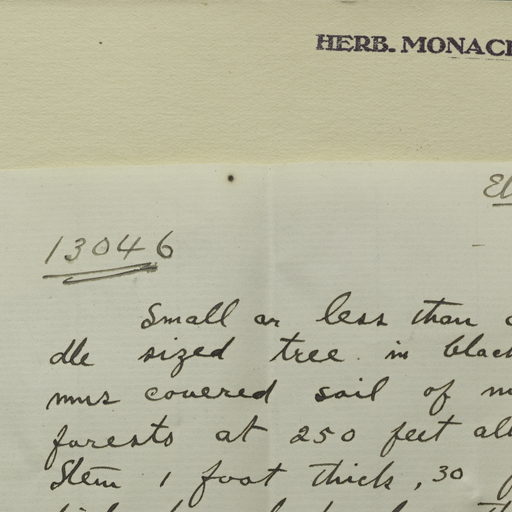 HERB. MONAC
El
13046
Small or less than
dle sized tree in black
mus covered soil of
forests at 250 feet al
Stem 1 foot thick, 30